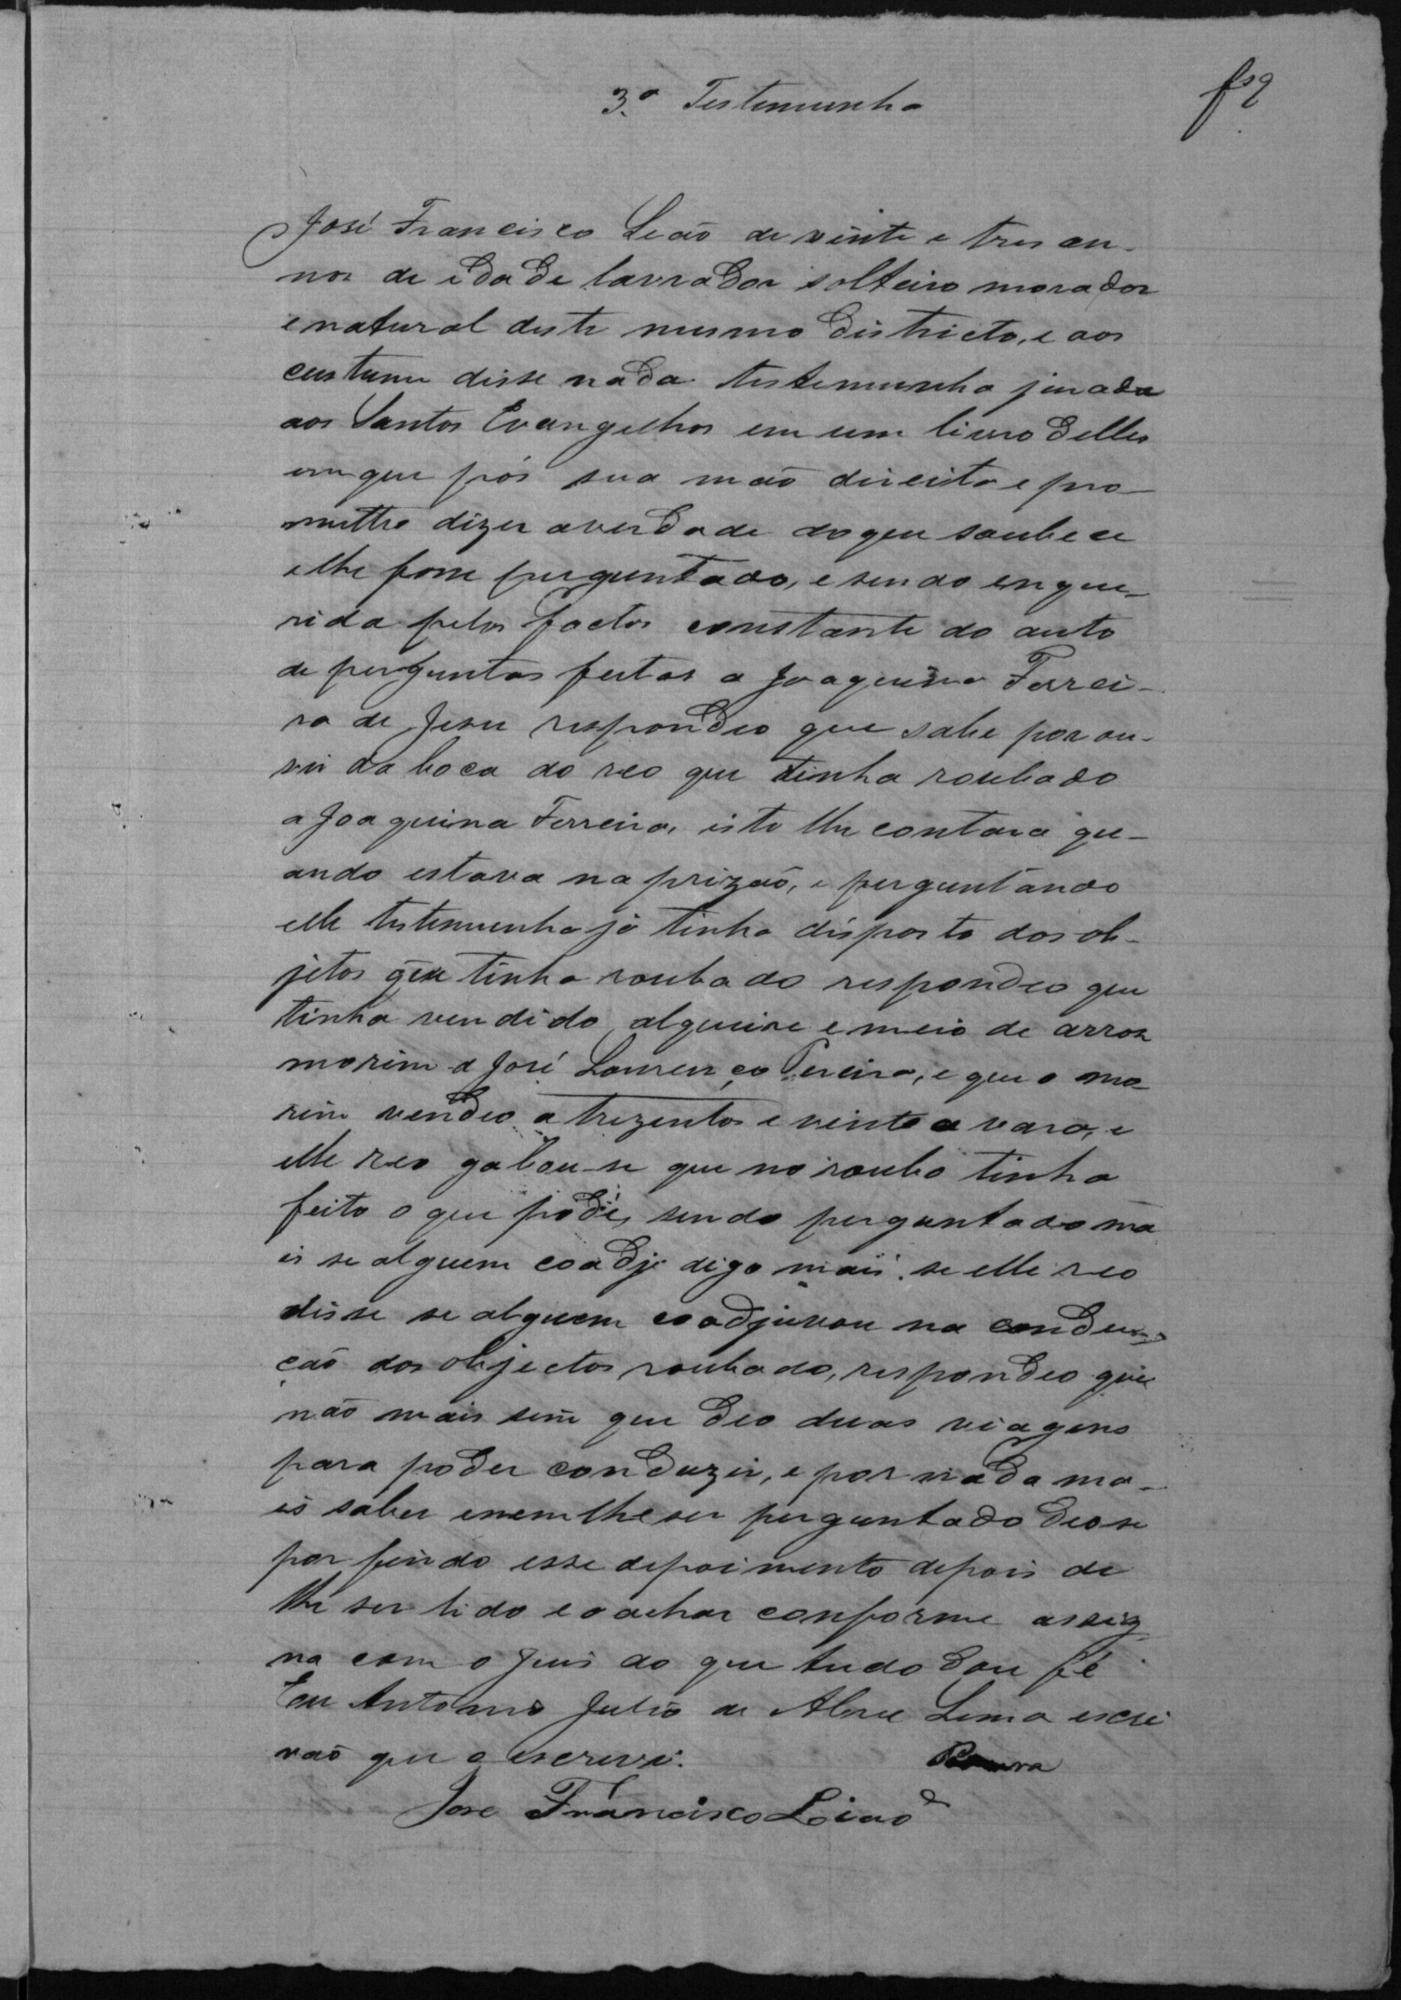 3.ª Testemunha
José Francisco Leão de vinte e tres an-
nos de idade lavrador solteiro morador
e natural deste mesmo districto, e aos
custume disse nada testemunha jurada
aos Santos Evangelhos em um livro delles
em que pós sua mão direita e pro-
metteo dizer a verdade do que soubece
e lhe fosse perguntado, e sendo enque-
rida pelos factos constante do auto
de perguntas feitas a Joaquina Ferrei-
ra de Jesu respondeo que sabe por ou-
vir da boca do reo que tinha roubado
a Joaquina Ferreira, isto lhe contara qu-
ando estava na prizão, e perguntando
elle testemunha já tinha disposto dos ob-
jetos que tinha roubado respondeo que
tinha vendido alqueire e meio de arros
morim a José Lourenço Pereira, e que o mo
rim vendeo a trezentos e vinte a vara, e
elle reo gabou-se que no roubo tinha
feito o que póde, sendo perguntado ma
is se alguem coadj digo mais se elle reo
disse se alguem coadjuvou na condu-
ção dos objectos roubado, respondeo que
não mais sim que deo duas viagens
para poder conduzir, e por nada ma-
is saber e nem lhe ser perguntado deo se
por findo esse depoimento depois de
lhe ser lido e o achar conforme assig
na com o Juis do que tudo dou fé
Eu Antonio Julio de Abreu Lima escri
vão que o escrevi.
Jose Francisco Leiao